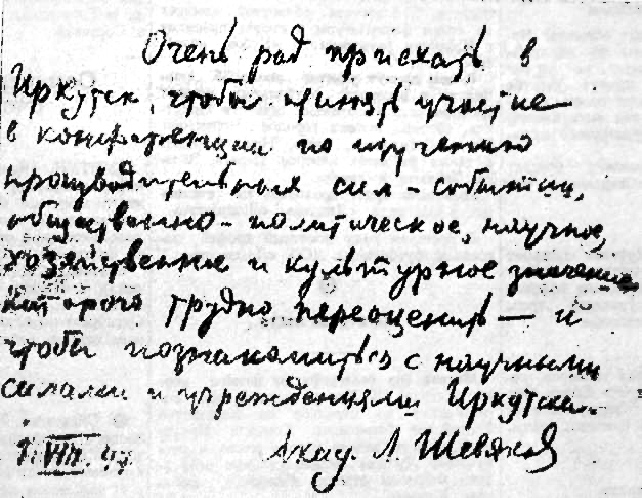 Очень рад приехать в
Иркутск, чтобы принять участие
в конференции по изучению
производительных сил – событии,
общественно-политическое, научное,
хозяйственное и культурное значение
которого трудно переоценить — и
чтобы познакомиться с научными
силами и учреждениями Иркутска.
1.VIII.47 Акад. Л. Шевяков